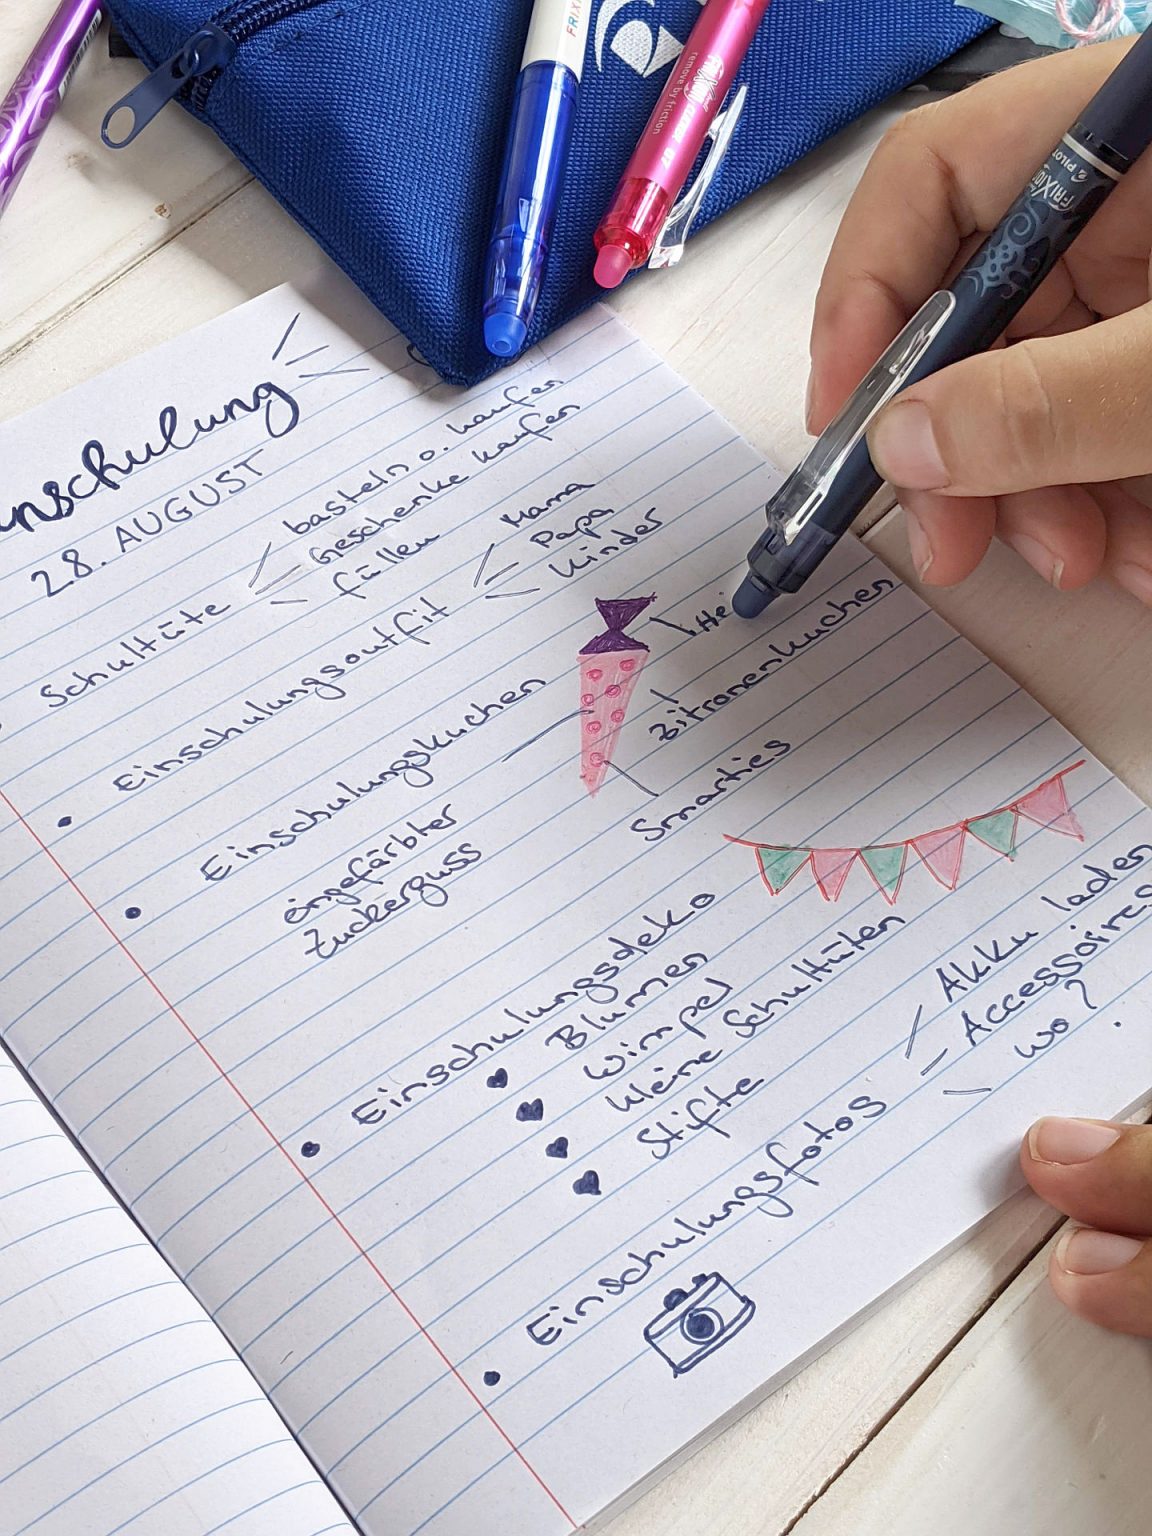 FRIX
FRIXION CLICKER 07
remove by friction
FRIXION
PILOT
inschulung
28. AUGUST
Schultüte
basteln o. kaufen
Geschenke kaufen
füllen
Einschulungsoutfit
Mama
Papa
Kinder
Einschulungskuchen
eingefärbter
Zuckerguss
Zitronenkuchen
Smarties
Einschulungsdeko
Blumen
Wimpel
kleine Schultüten
Stifte
Einschulungsfotos
Akku laden
Accessoires
wo?